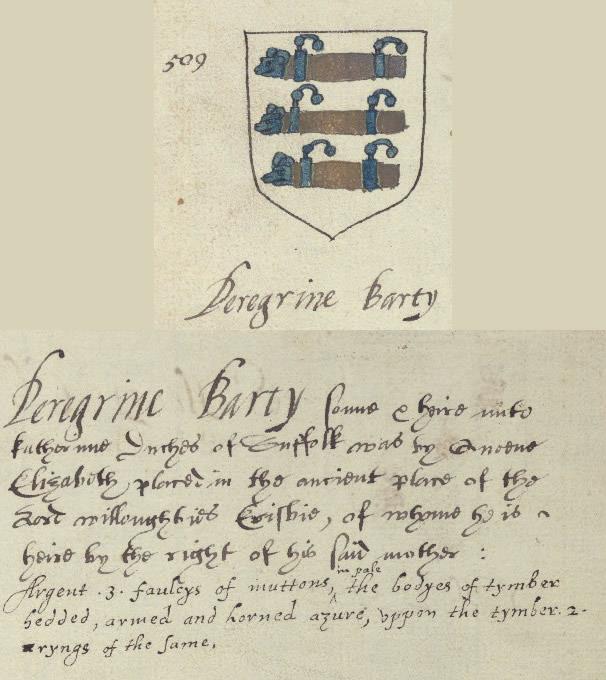 509
Peregrine Barty
Peregrine Barty sonne & heire unto
Katherinne Duches of Suffolk was by Queene
Elizabeth, placed in the ancient place of the
Lord willoughties Erisbie, of whome he is
heire by the right of his said mother :
Argent .3. faulcys of muttons, in pale the bodyes of tymber
hedded, armed and horned azure, vppon the tymber .2.
ryngs of the same.